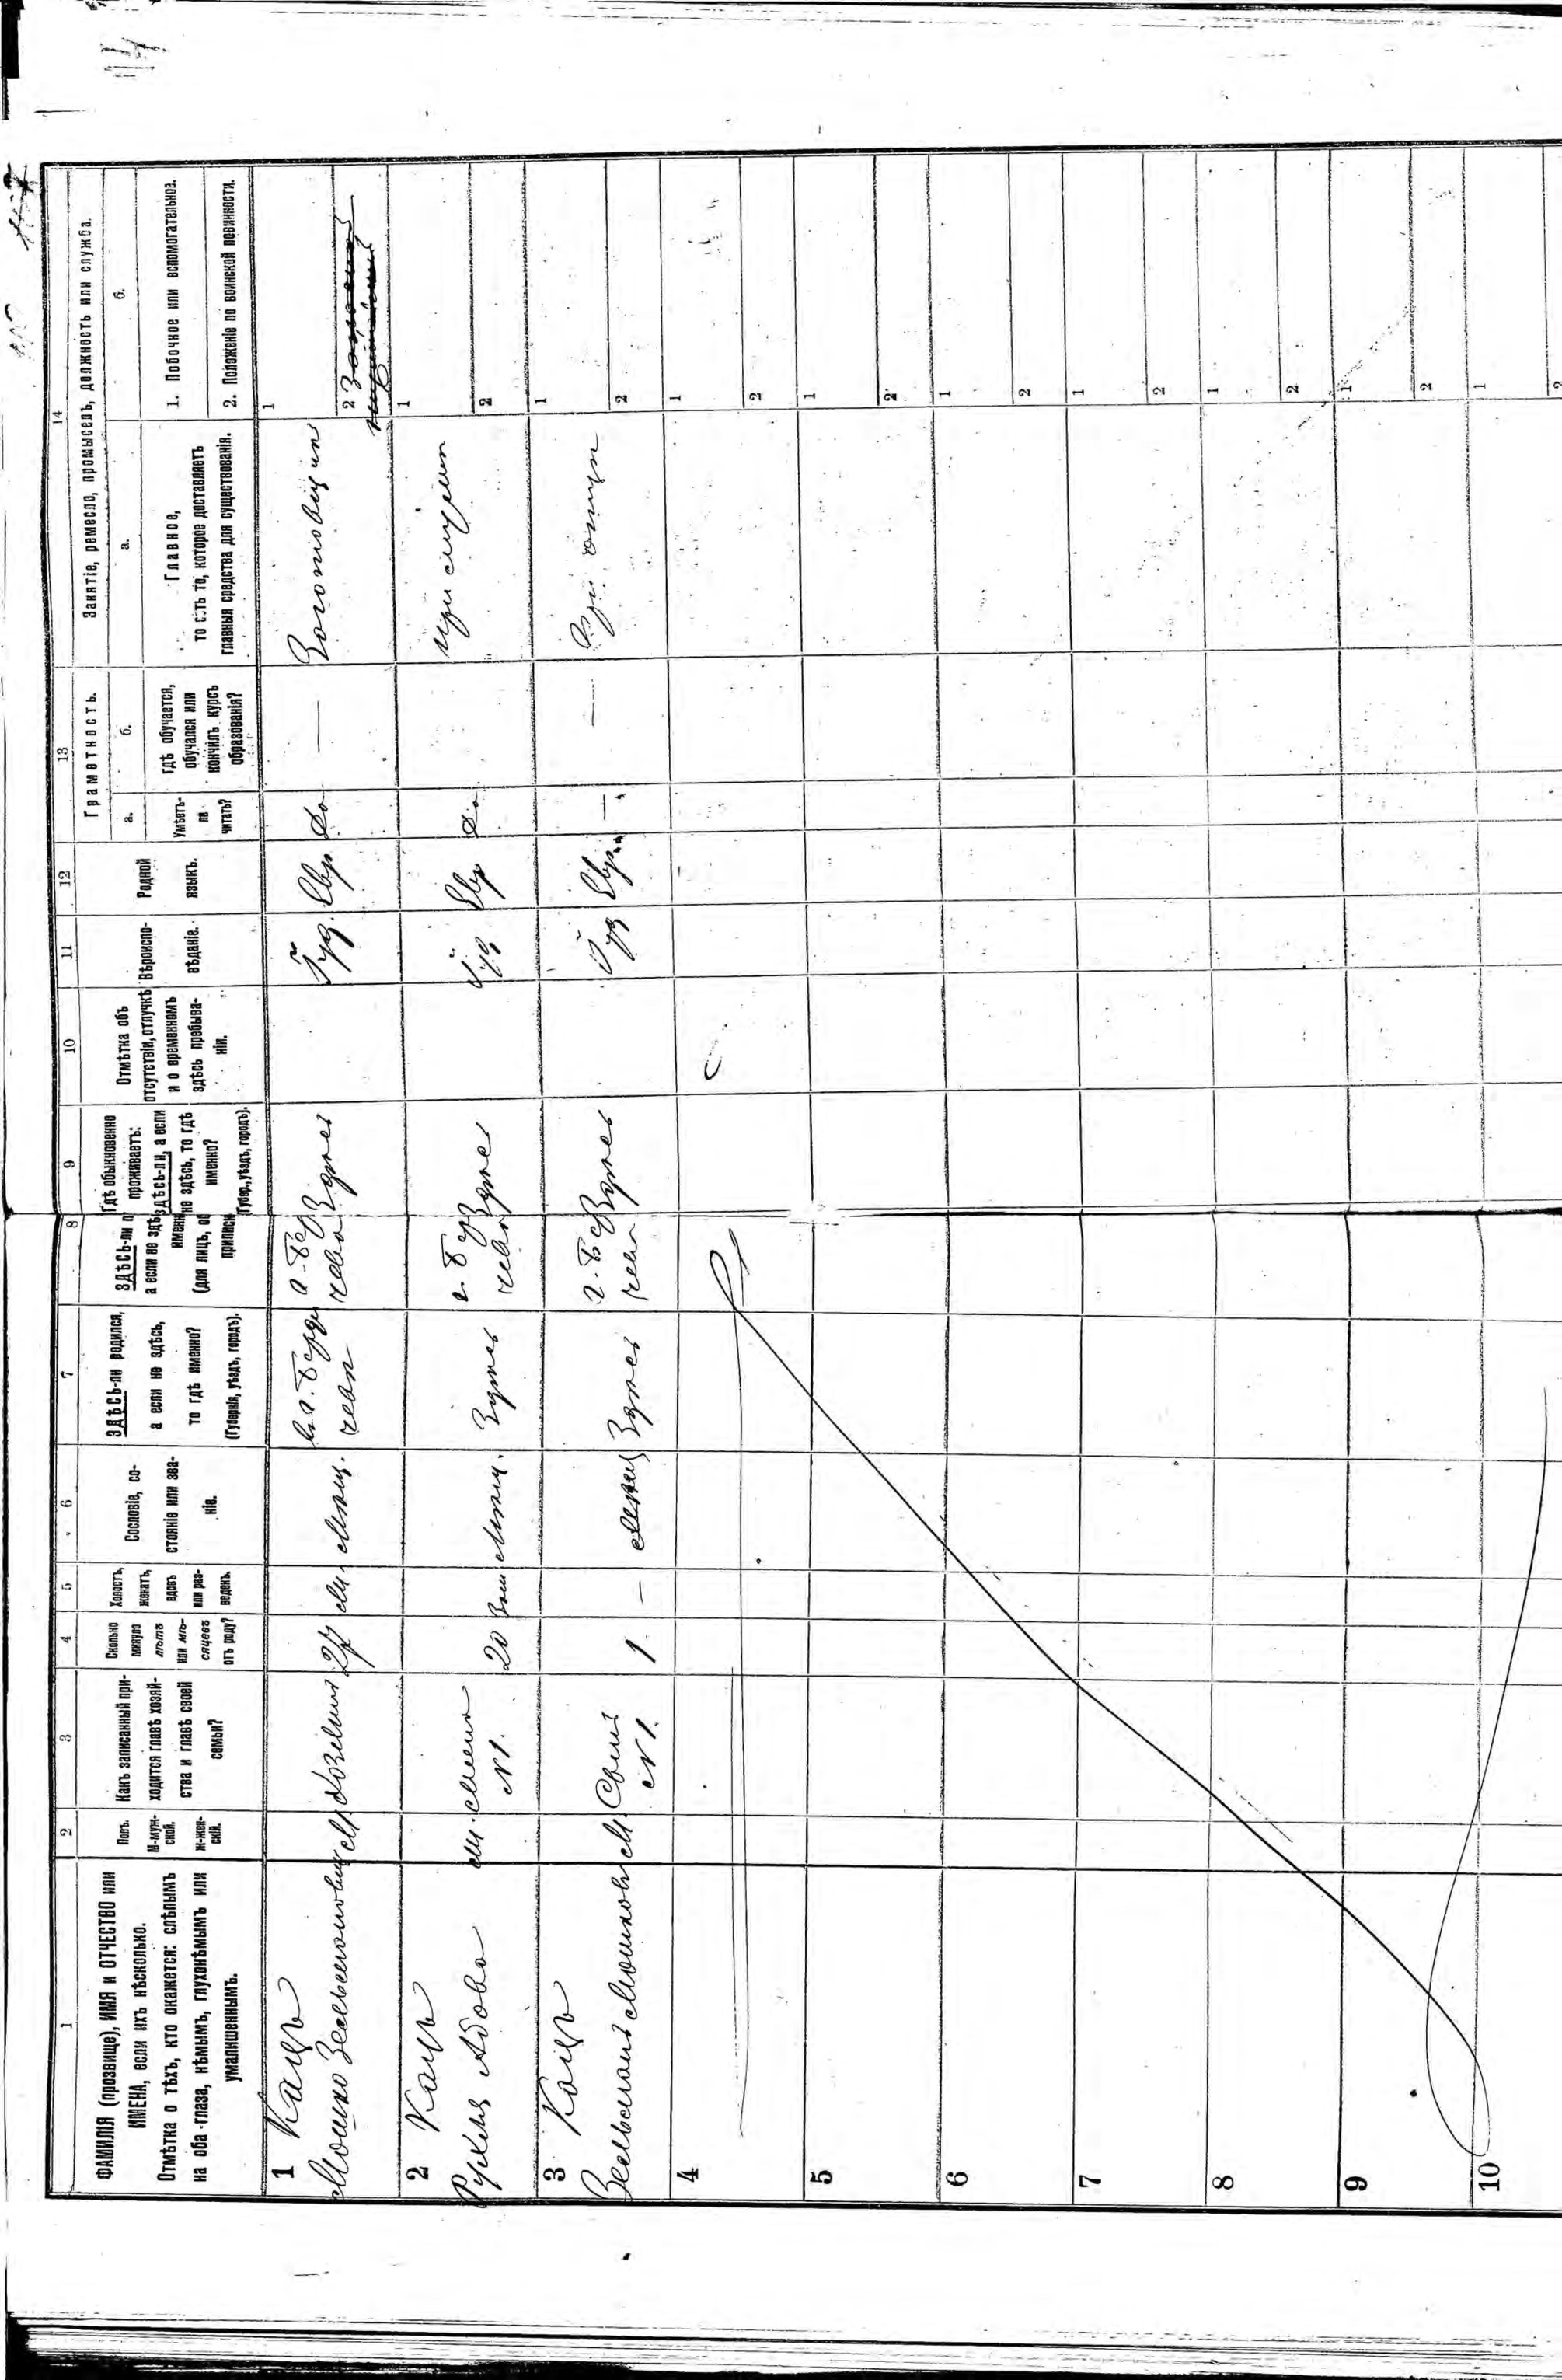 1
ФАМИЛІЯ (прозвище), ИМЯ и ОТЧЕСТВО или
ИМЕНА, если ихъ нѣсколько.
Отмѣтка о тѣхъ, кто окажется: слѣпымъ
на оба глаза, нѣмымъ, глухонѣмымъ или
умалишеннымъ.
2
Полъ.
М-муж-
ской.
ж-жен-
скій.
3
Какъ записанный при-
ходится главѣ хозяй-
ства и главѣ своей
семьи?
4
Сколько
минуло
лѣтъ
или мѣ-
сяцевъ
отъ роду?
5
Холостъ,
женатъ,
вдовъ
или раз-
веденъ.
6
Сословіе, со-
стояніе или зва-
ніе.
7
ЗДѢСЬ-ли родился,
а если не здѣсь,
то гдѣ именно?
(Губернія, уѣздъ, городъ).
8
ЗДѢСЬ-ли п
а если не здѣ
именн
(для лицъ, об
приписк
9
Гдѣ обыкновенно
проживаетъ:
здѣсь-ли, а если
не здѣсь, то гдѣ
именно?
(Губер., уѣздъ, городъ).
10
Отмѣтка объ
отсутствіи, отлучкѣ
и о временномъ
здѣсь пребыва-
ніи.
11
Вѣроиспо-
вѣданіе.
12
Родной
языкъ.
13
Грамотность.
а.
Умѣетъ-
ли
читать?
б.
гдѣ обучается,
обучался или
кончилъ курсъ
образованія?
14
Занятіе, ремесло, промыселъ, должность или служба.
а.
Главное,
то есть то, которое доставляетъ
главныя средства для существованія.
б.
1. Побочное или вспомогательное.
2. Положеніе по воинской повинности.
1 Кацъ
Мошко Зельманович М. Хозяинъ 27
Мѣщ. в г. Берди
чевѣ г. Бер
чева Здѣсь Іуд. Евр Да — 1
2
2 Кацъ
Рухля
Жена
№ 1. 20 Мѣщ. Здѣсь г. Бер
чева Здѣсь Іуд Евр Да при мужѣ 1
2
3 Кацъ
Зельманъ Мошков М. Сынъ
№ 1. 1 — Здѣсь г. Бер
чева Здѣсь Іуд Евр. — — При отцѣ 1
2
4 1
2
5 1
2
6 1
2
7 1
2
8 1
2
9 1
2
10 1
2